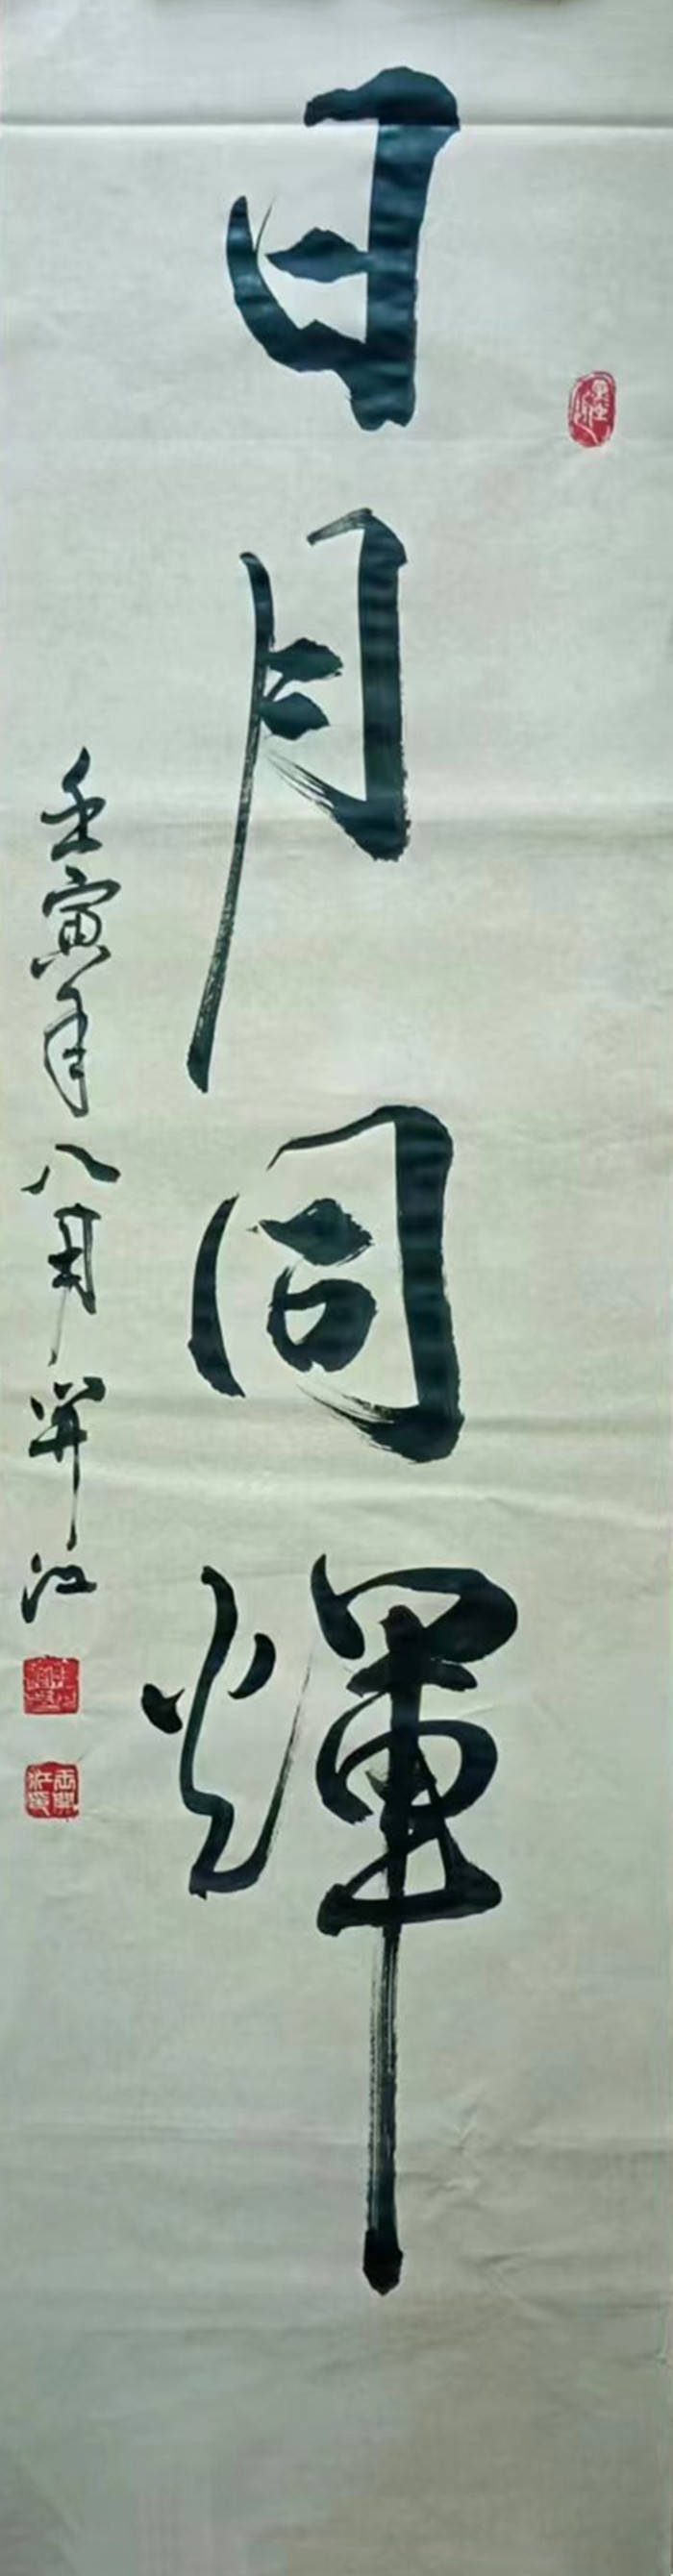 日月同輝
壬寅年八月开江